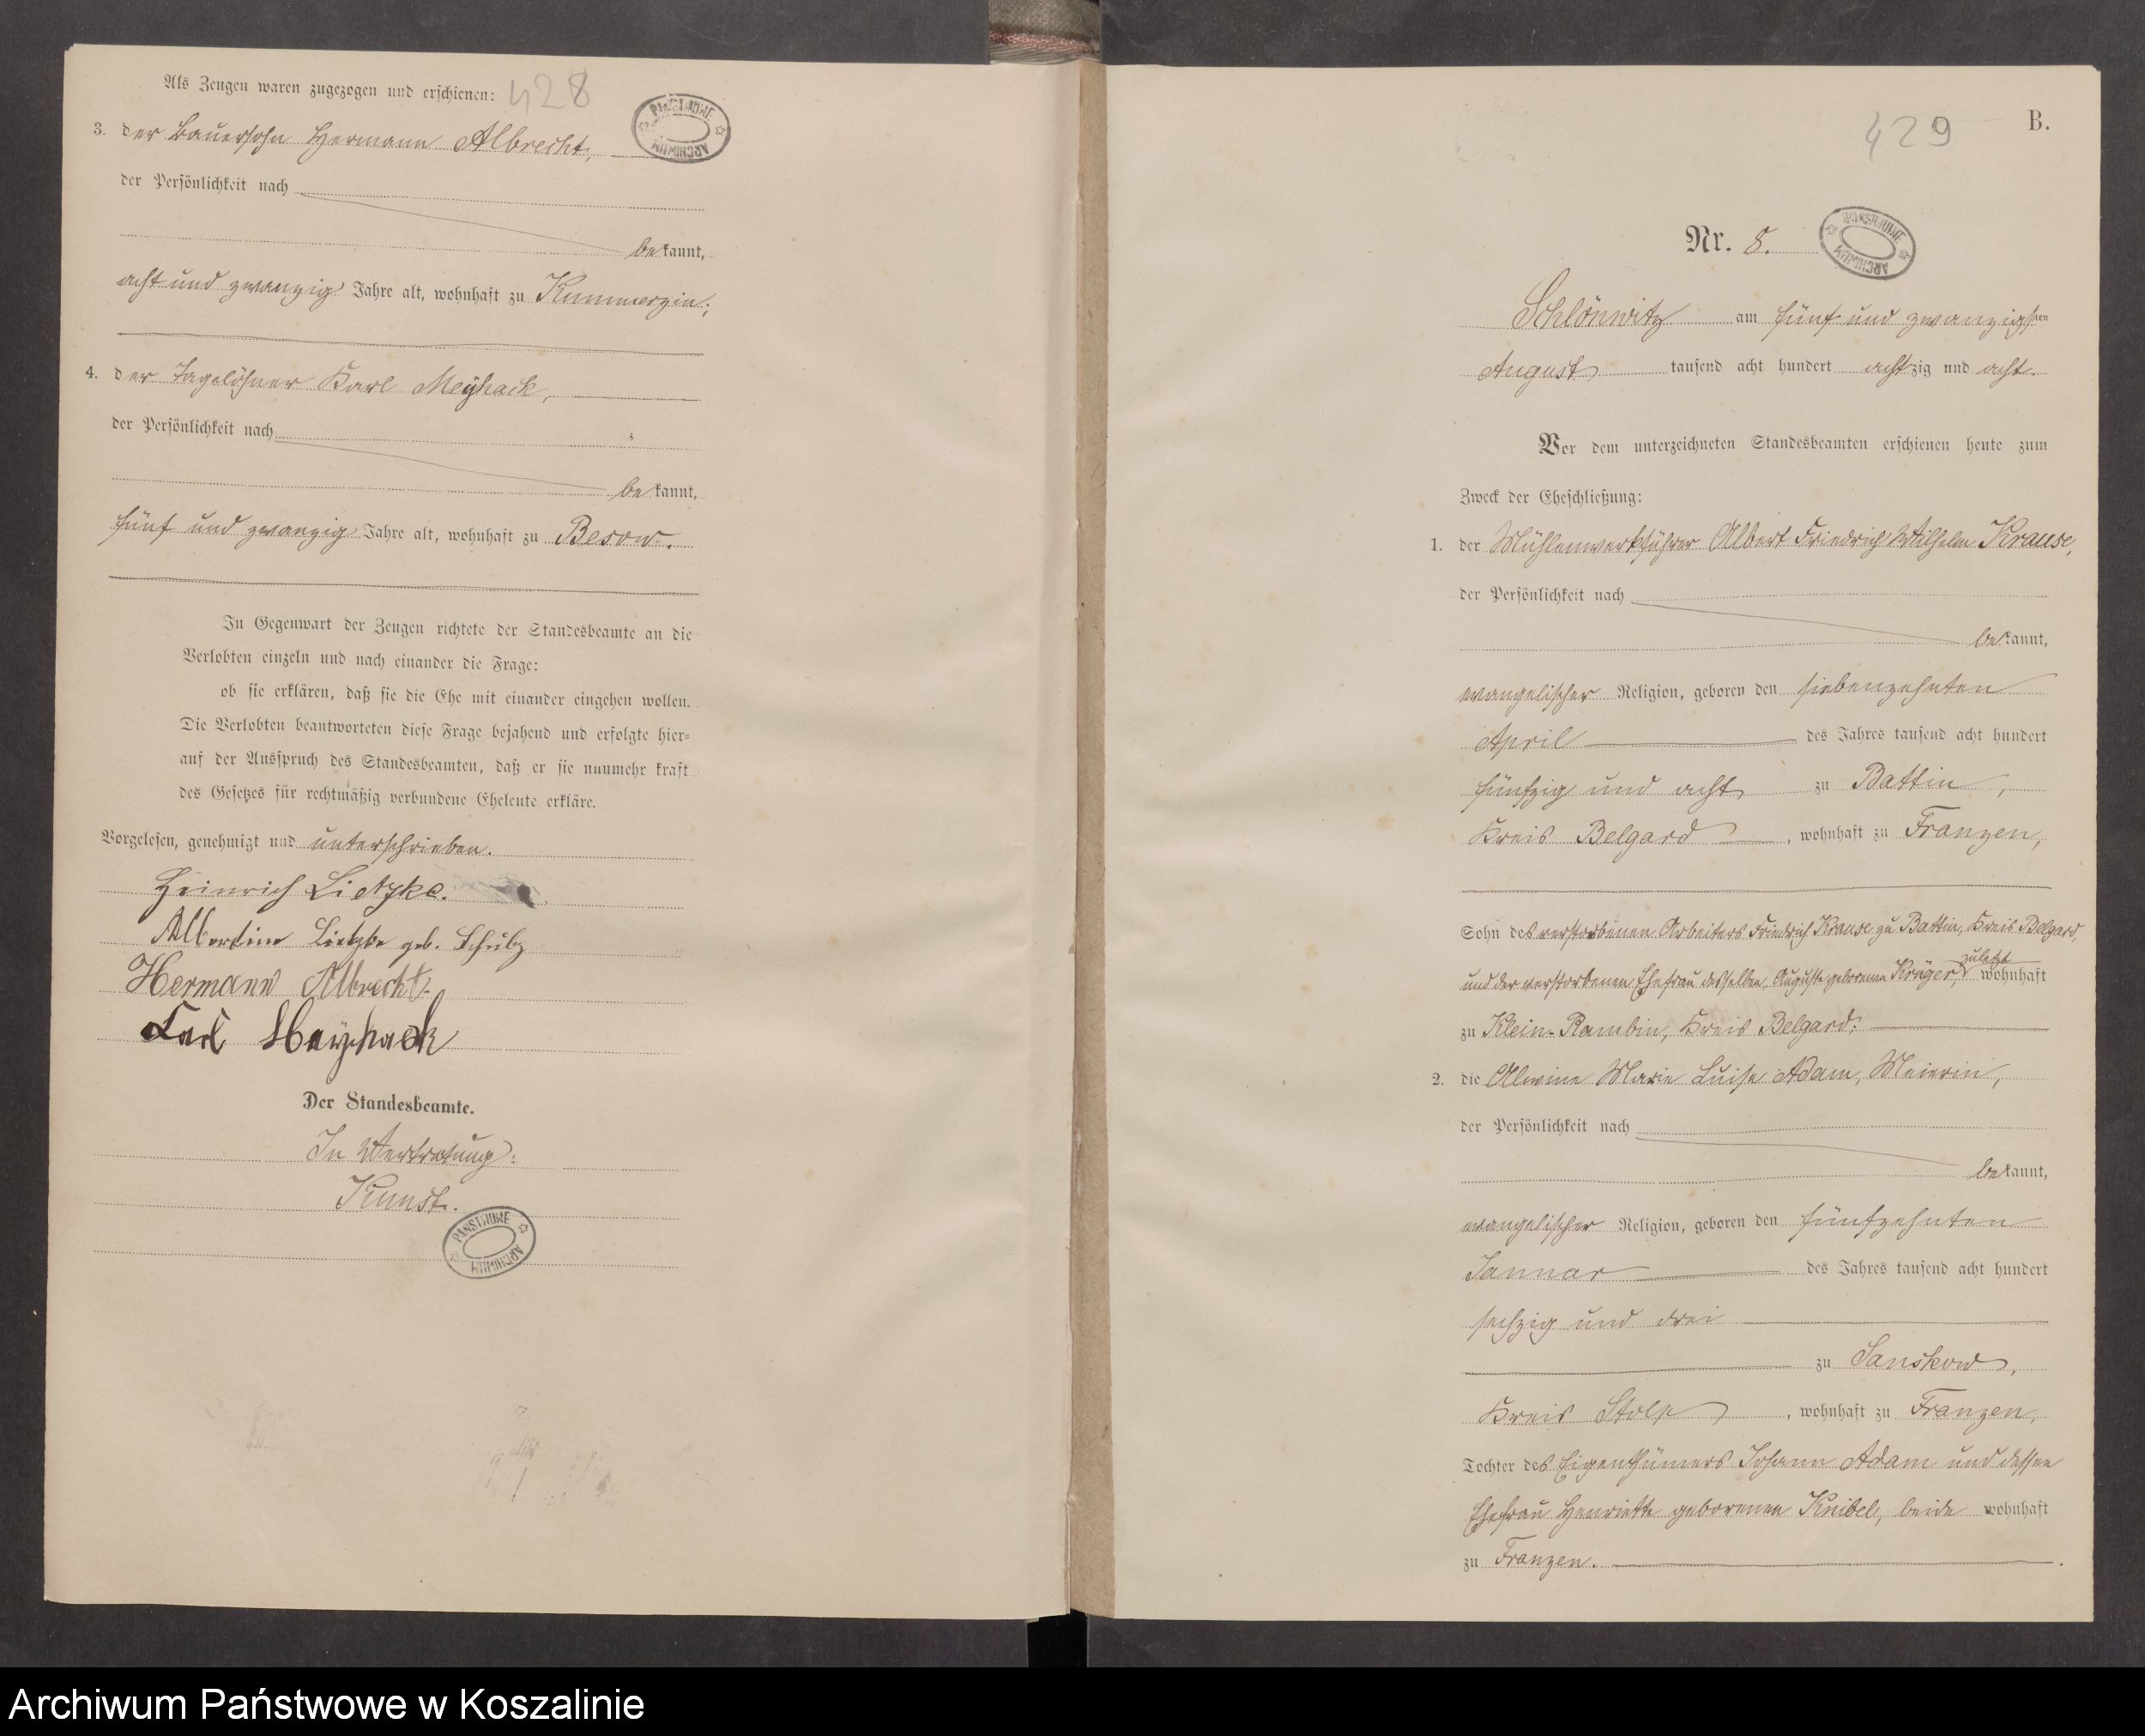 Als Zeugen waren zugezogen und erschienen: 428
PAŃSTWOWE ARCHIWUM
3. der Bauersohn Hermann Albrecht,
der Persönlichkeit nach
bekannt,
acht und zwanzig Jahre alt, wohnhaft zu Kummerzin;
4. der Tagelöhner Karl Meÿhack,
der Persönlichkeit nach
bekannt,
fünf und zwanzig Jahre alt, wohnhaft zu Besow.
In Gegenwart der Zeugen richtete der Standesbeamte an die
Verlobten einzeln und nach einander die Frage:
ob sie erklären, daß sie die Ehe mit einander eingehen wollen.
Die Verlobten beantworteten diese Frage bejahend und erfolgte hier=
auf der Ausspruch des Standesbeamten, daß er sie nunmehr kraft
des Gesetzes für rechtmäßig verbundene Eheleute erkläre.
Vorgelesen, genehmigt und unterschrieben.
Heinrich Lietzke.
Albertine Lietzke geb. Schulz
Hermann Albrecht.
Carl Meÿhack
Der Standesbeamte.
In Vertretung:
Kunst.
PAŃSTWOWE ARCHIWUM
429 B.
Nr. 8.
PAŃSTWOWE ARCHIWUM
Schlönwitz am fünf und zwanzigsten
August tausend acht hundert achtzig und acht.
Vor dem unterzeichneten Standesbeamten erschienen heute zum
Zweck der Eheschließung:
1. der Mühlenwerkführer Albert Friedrich Wilhelm Krause,
der Persönlichkeit nach
bekannt,
evangelischer Religion, geboren den siebenzehnten
April des Jahres tausend acht hundert
fünfzig und acht zu Battin,
Kreis Belgard, wohnhaft zu Franzen,
Sohn des verstorbenen Arbeiters Friedrich Krause zu Battin, Kreis Belgard,
und der verstorbenen Ehefrau desselben, Auguste geborenen Krüger, zuletzt wohnhaft
zu Klein-Rambin, Kreis Belgard;
2. die Alwine Marie Luise Adam, Meierin,
der Persönlichkeit nach
bekannt,
evangelischer Religion, geboren den fünfzehnten
Januar des Jahres tausend acht hundert
sechzig und drei
zu Sanskow,
Kreis Stolp, wohnhaft zu Franzen,
Tochter des Eigenthümers Johann Adam und dessen
Ehefrau Henriette geborenen Kneibel, beide wohnhaft
zu Franzen.
Archiwum Państwowe w Koszalinie